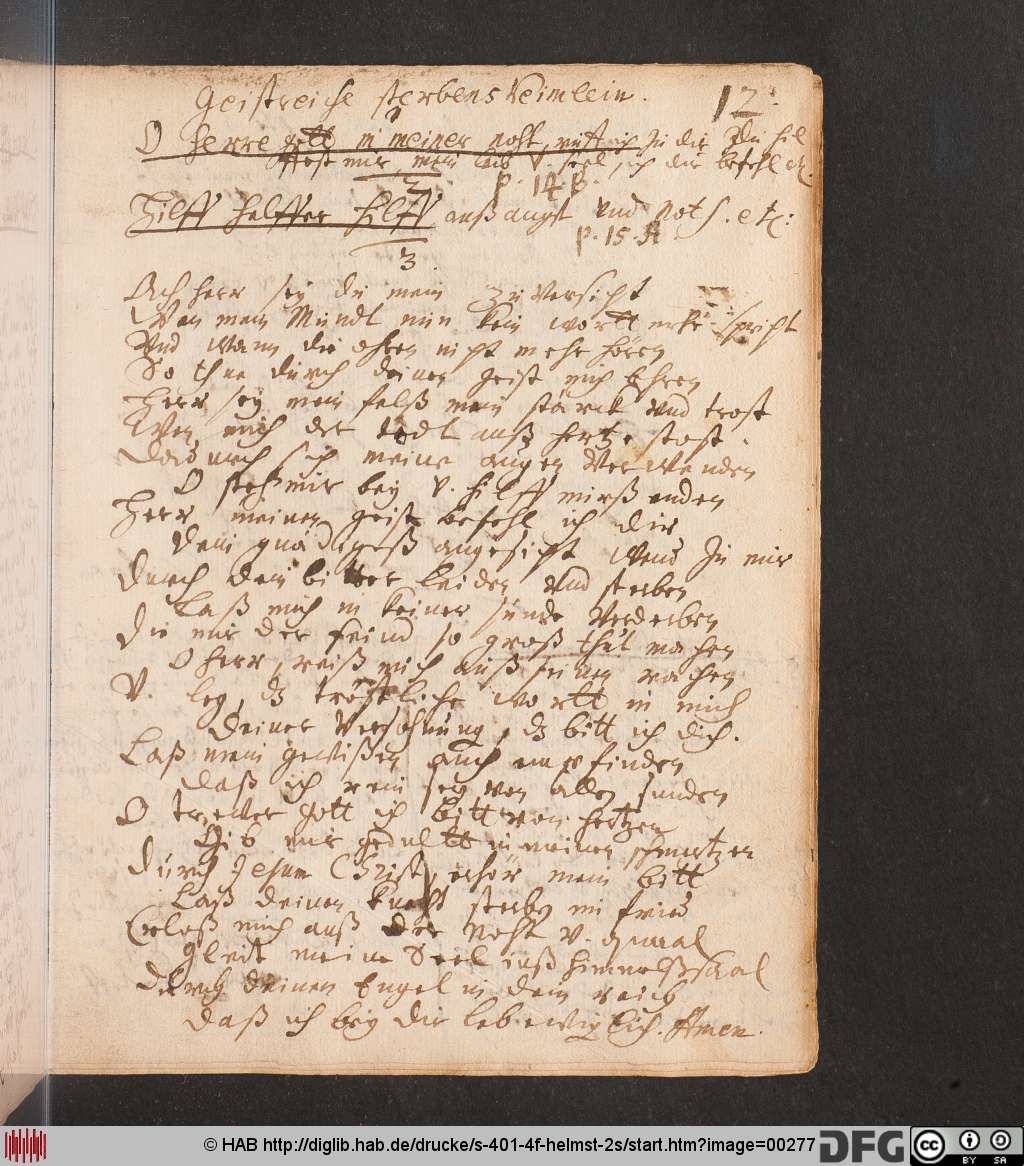 Geistreiche sterbens Reimlein.
12.
O Herre gott in meiner noht, ruff ich zu dir Du hil
ffest mir, mein leib v. seel, ich dir befehl etc.
2
p. 14. B.
Hilff helffer hilff auß angst und noth. etc:
p. 15. A
3.
Ach herr sey du mein zuversicht
Wan mein Mundt nun kein wortt mehr spricht
Und wann die ohren nicht mehr hören
So thue durch deinen geist mich lehren
Herr sey mein felß mein starck und trost
Wen mich der todt auß hertze stost.
Da nach sich meine augen verwenden
O steh mir bey v. hilff mirß enden
Herr meinen geist befehl ich dir
Dein gnädigeß angesicht wend zu mir
Durch dein bitter leiden und sterben
Laß mich in keiner sünde verderben
Die mir der feind so groß thut machen
O herr, reiß mich auß seinen rachen
V. leg dz tröstliche wortt in mich
Deiner versöhnung, dz bitt ich dich.
Laß mein gewißen auch empfinden
Daß ich rein sey von allen sunden
O trewer gott ich bitt von hertzen
Gib mir gedultt in meinen schmertzen
Durch Jesum Christ, erhör mein bitt
Laß deinen knecht sterben im fried
Erloß mich auß der noht v. qwaal
Gleit meine Seel inß himmelßsaal
Durch deinen Engel in dein reich
Daß ich bey dir leb ewiglich. Amen.
© HAB http://diglib.hab.de/drucke/s-401-4f-helmst-2s/start.htm?image=00277
DFG
cc
BY SA